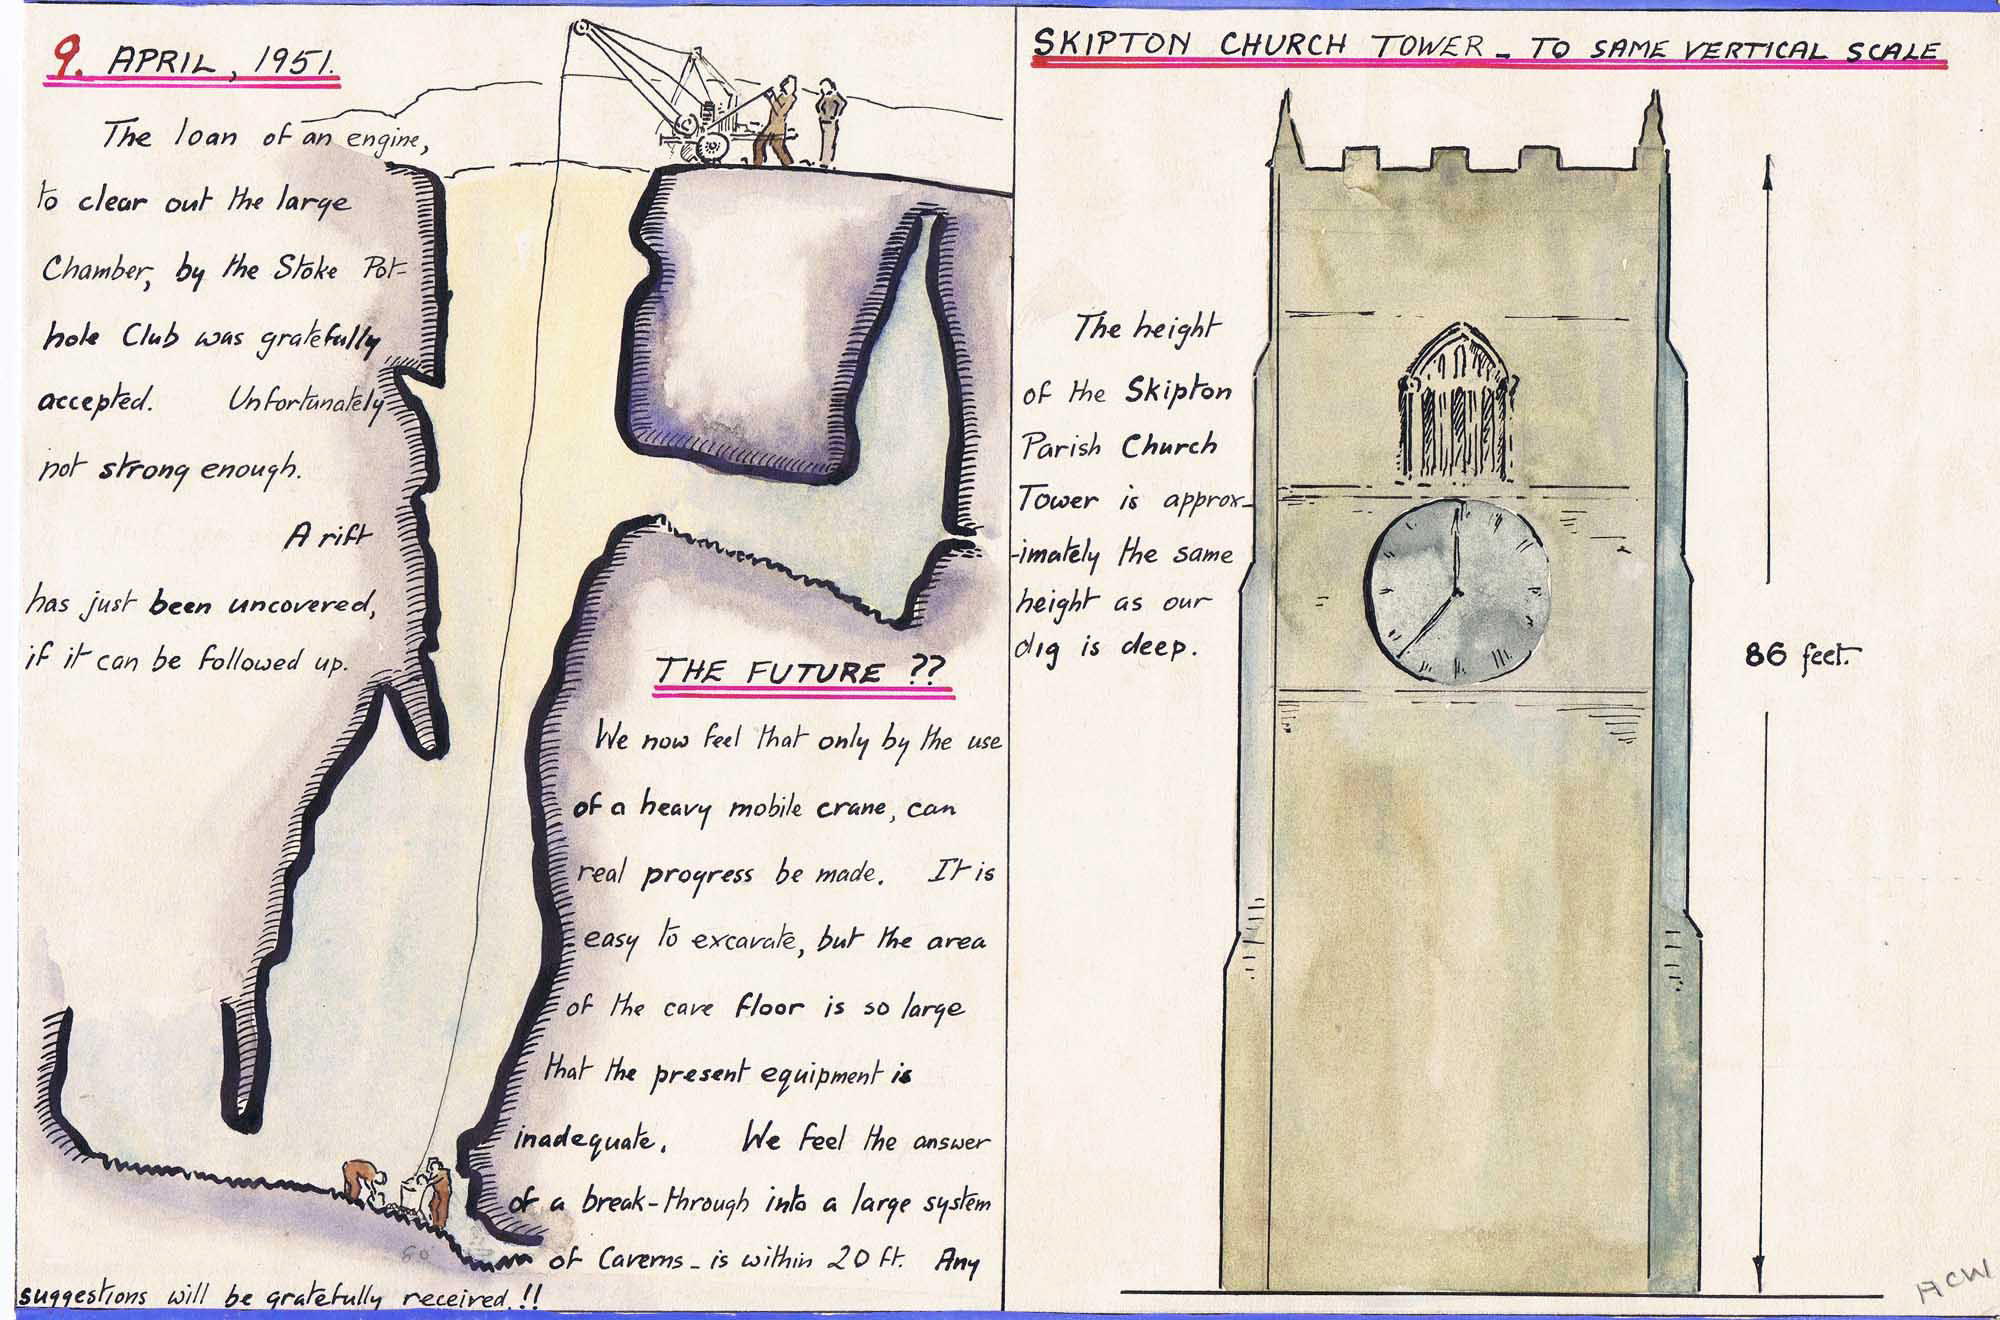 9. APRIL, 1951.
The loan of an engine,
to clear out the large
Chamber, by the Stoke Pot-
hole Club was gratefully
accepted. Unfortunately
not strong enough.
A rift
has just been uncovered,
if it can be followed up.
THE FUTURE ??
We now feel that only by the use
of a heavy mobile crane, can
real progress be made. It is
easy to excavate, but the area
of the cave floor is so large
that the present equipment is
inadequate. We feel the answer
of a break-through into a large system
of Caverns - is within 20 ft. Any
suggestions will be gratefully received.!!
60'
SKIPTON CHURCH TOWER - TO SAME VERTICAL SCALE
The height
of the Skipton
Parish Church
Tower is approx-
-imately the same
height as our
dig is deep.
86 feet.
ACW